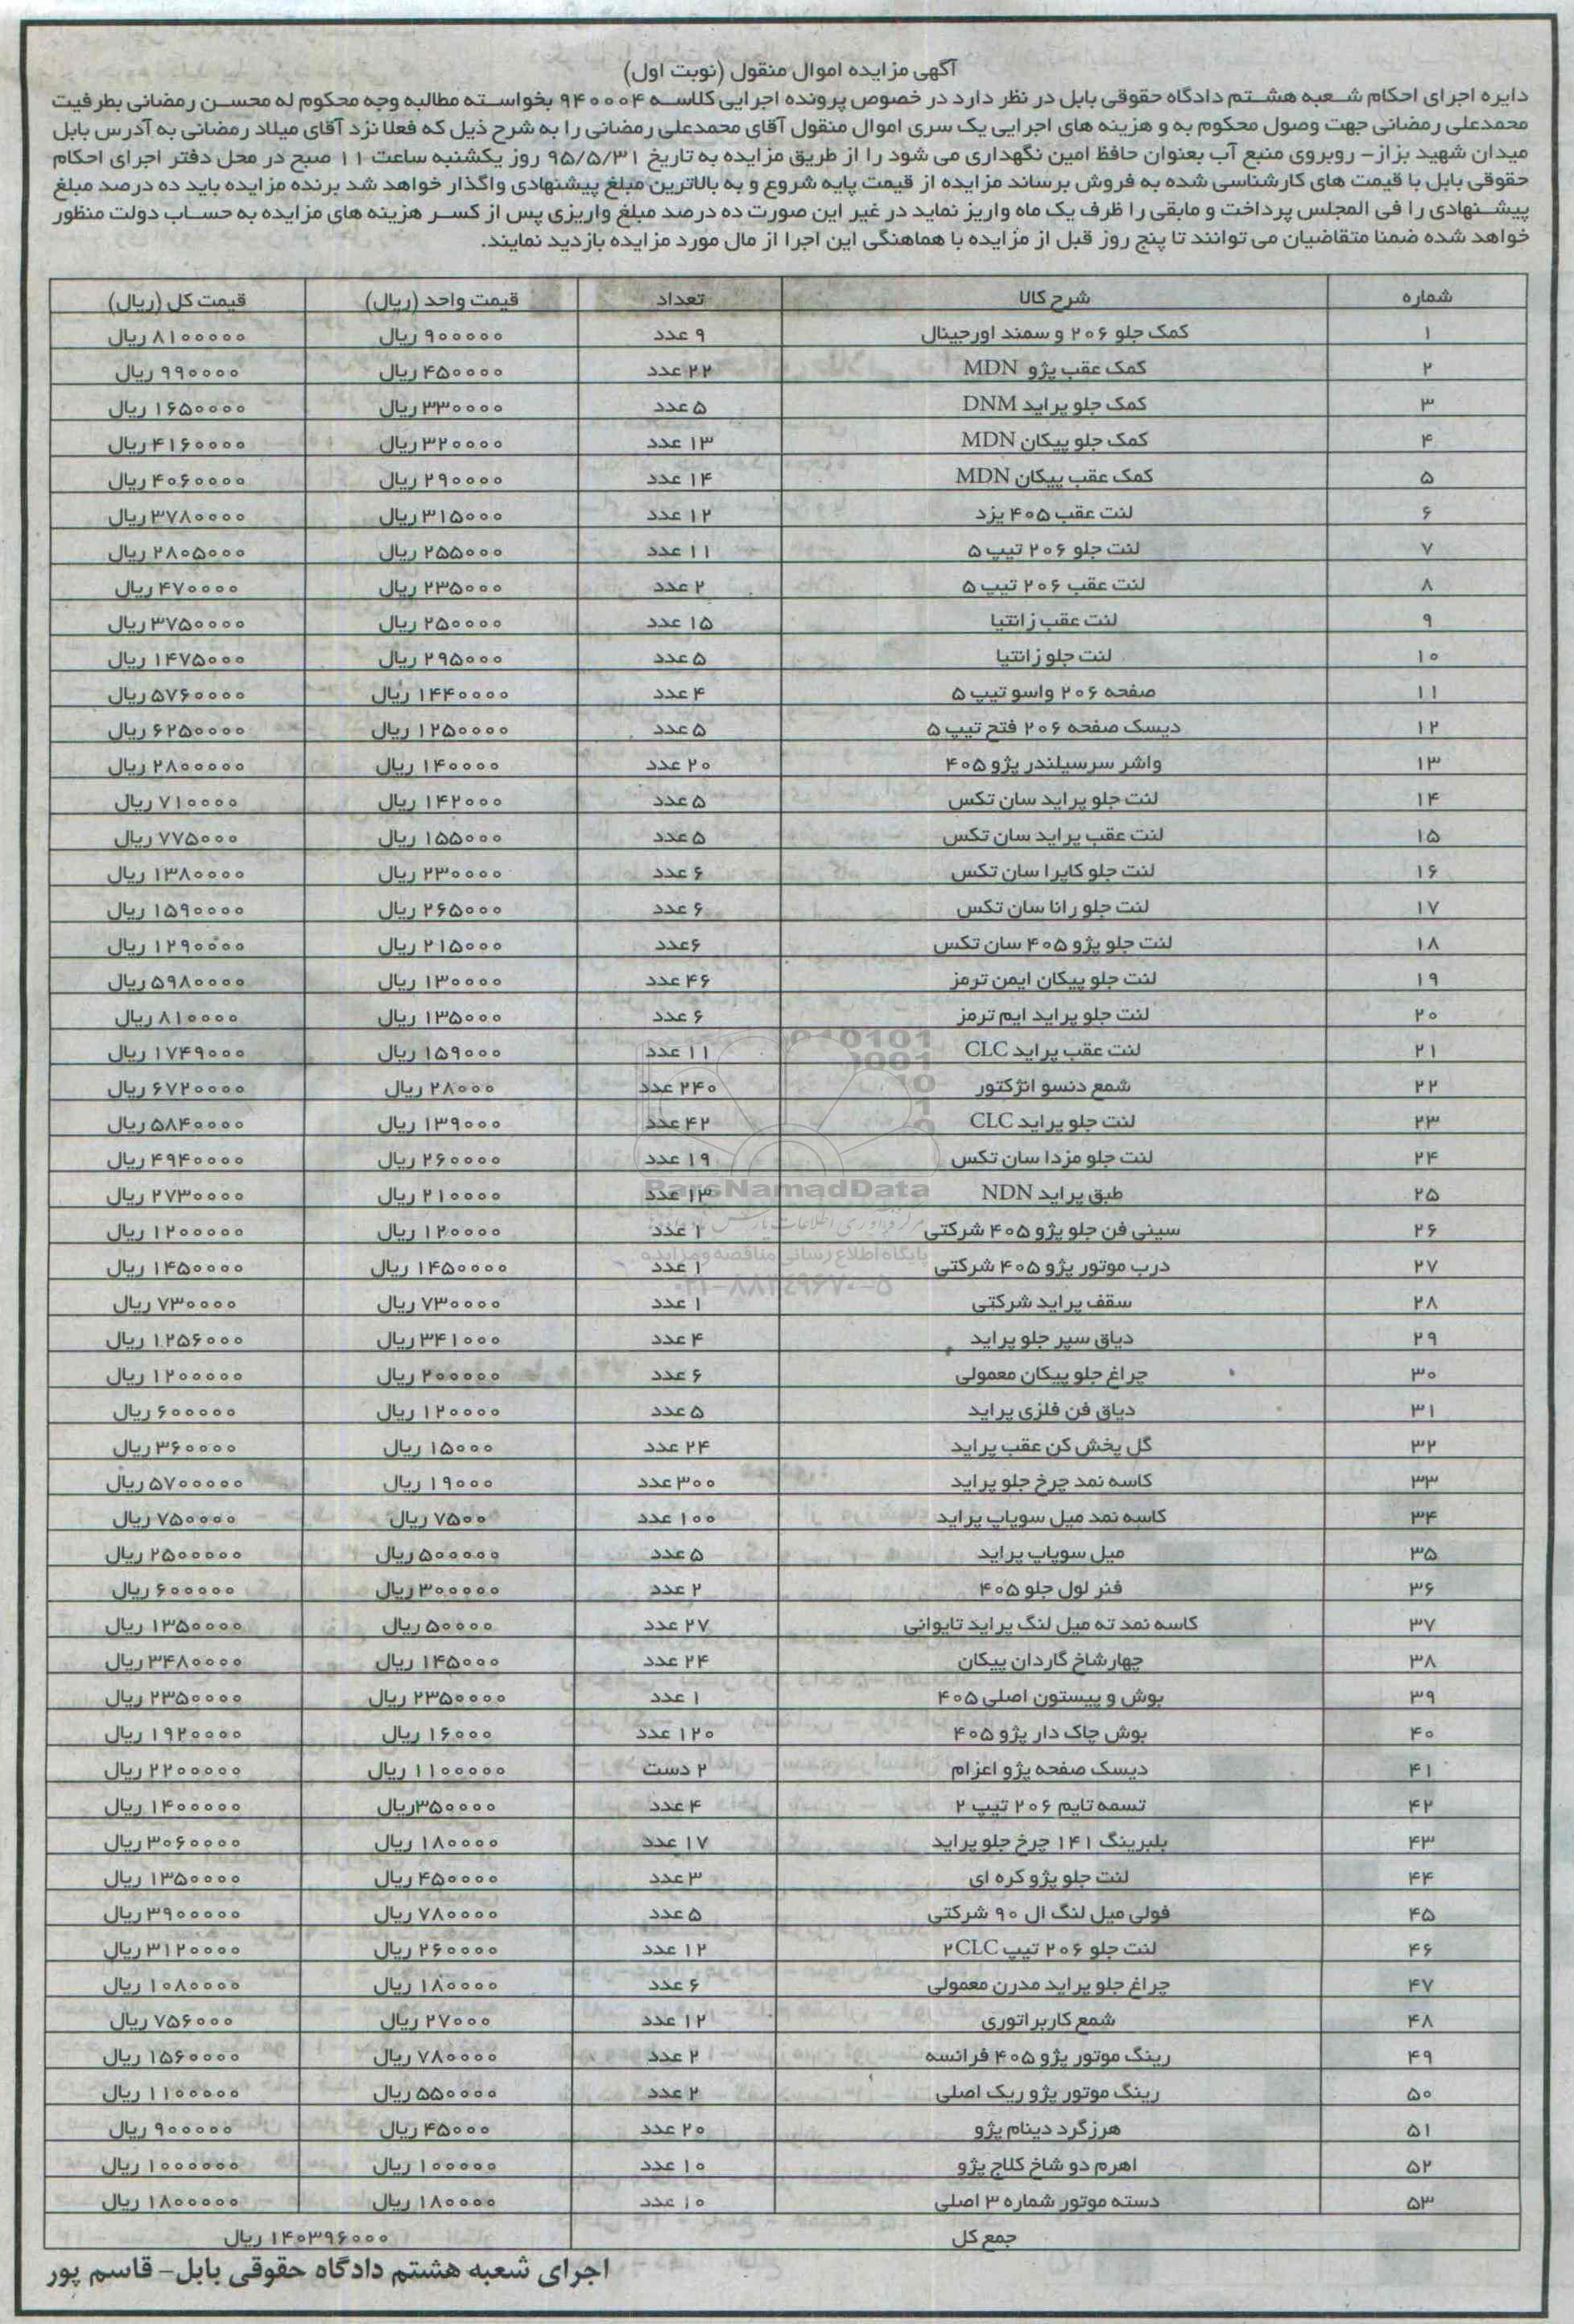 آگهی مزایده اموال منقول (نوبت اول)
دایره اجرای احکام شعبه هشتم دادگاه حقوقی بابل در نظر دارد در خصوص پرونده اجرایی کلاسه ۹۴۰۰۰۴ بخواسته مطالبه وجه محکوم له محسن رمضانی بطرفیت
محمدعلی رمضانی جهت وصول محکوم به و هزینه های اجرایی یک سری اموال منقول آقای محمدعلی رمضانی را به شرح ذیل که فعلا نزد آقای میلاد رمضانی به آدرس بابل
میدان شهید بزاز- روبروی منبع آب بعنوان حافظ امین نگهداری می شود را از طریق مزایده به تاریخ ۹۵/۵/۳۱ روز یکشنبه ساعت ۱۱ صبح در محل دفتر اجرای احکام
حقوقی بابل با قیمت های کارشناسی شده به فروش برساند مزایده از قیمت پایه شروع و به بالاترین مبلغ پیشنهادی واگذار خواهد شد برنده مزایده باید ده درصد مبلغ
پیشنهادی را فی المجلس پرداخت و مابقی را ظرف یک ماه واریز نماید در غیر این صورت ده درصد مبلغ واریزی پس از کسر هزینه های مزایده به حساب دولت منظور
خواهد شده ضمنا متقاضیان می توانند تا پنج روز قبل از مزایده با هماهنگی این اجرا از مال مورد مزایده بازدید نمایند.
شماره شرح کالا تعداد قیمت واحد (ریال) قیمت کل (ریال)
۱ کمک جلو ۲۰۶ و سمند اورجینال ۹ عدد ۹۰۰۰۰۰ ریال ۸۱۰۰۰۰۰ ریال
۲ کمک عقب پژو MDN ۲۲ عدد ۴۵۰۰۰۰ ریال ۹۹۰۰۰۰ ریال
۳ کمک جلو پراید DNM ۵ عدد ۳۳۰۰۰۰ ریال ۱۶۵۰۰۰۰ ریال
۴ کمک جلو پیکان MDN ۱۳ عدد ۳۲۰۰۰۰ ریال ۴۱۶۰۰۰۰ ریال
۵ کمک عقب پیکان MDN ۱۴ عدد ۲۹۰۰۰۰ ریال ۴۰۶۰۰۰۰ ریال
۶ لنت عقب ۴۰۵ یزد ۱۲ عدد ۳۱۵۰۰۰ ریال ۳۷۸۰۰۰۰ ریال
۷ لنت جلو ۲۰۶ تیپ ۵ ۱۱ عدد ۲۵۵۰۰۰ ریال ۲۸۰۵۰۰۰ ریال
۸ لنت عقب ۲۰۶ تیپ ۵ ۲ عدد ۲۳۵۰۰۰ ریال ۴۷۰۰۰۰ ریال
۹ لنت عقب زانتیا ۱۵ عدد ۲۵۰۰۰۰ ریال ۳۷۵۰۰۰۰ ریال
۱۰ لنت جلو زانتیا ۵ عدد ۲۹۵۰۰۰ ریال ۱۴۷۵۰۰۰ ریال
۱۱ صفحه ۲۰۶ واسو تیپ ۵ ۴ عدد ۱۴۴۰۰۰۰ ریال ۵۷۶۰۰۰۰ ریال
۱۲ دیسک صفحه ۲۰۶ فتح تیپ ۵ ۵ عدد ۱۲۵۰۰۰۰ ریال ۶۲۵۰۰۰۰ ریال
۱۳ واشر سرسیلندر پژو ۴۰۵ ۲۰ عدد ۱۴۰۰۰۰ ریال ۲۸۰۰۰۰۰ ریال
۱۴ لنت جلو پراید سان تکس ۵ عدد ۱۴۲۰۰۰ ریال ۷۱۰۰۰۰ ریال
۱۵ لنت عقب پراید سان تکس ۵ عدد ۱۵۵۰۰۰ ریال ۷۷۵۰۰۰ ریال
۱۶ لنت جلو کاپرا سان تکس ۶ عدد ۲۳۰۰۰۰ ریال ۱۳۸۰۰۰۰ ریال
۱۷ لنت جلو رانا سان تکس ۶ عدد ۲۶۵۰۰۰ ریال ۱۵۹۰۰۰۰ ریال
۱۸ لنت جلو پژو ۴۰۵ سان تکس ۶عدد ۲۱۵۰۰۰ ریال ۱۲۹۰۰۰۰ ریال
۱۹ لنت جلو پیکان ایمن ترمز ۴۶ عدد ۱۳۰۰۰۰ ریال ۵۹۸۰۰۰۰ ریال
۲۰ لنت جلو پراید ایم ترمز ۶ عدد ۱۳۵۰۰۰ ریال ۸۱۰۰۰۰ ریال
۲۱ لنت عقب پراید CLC ۱۱ عدد ۱۵۹۰۰۰ ریال ۱۷۴۹۰۰۰ ریال
۲۲ شمع دنسو انژکتور ۲۴۰ عدد ۲۸۰۰۰ ریال ۶۷۲۰۰۰۰ ریال
۲۳ لنت جلو پراید CLC ۴۲ عدد ۱۳۹۰۰۰ ریال ۵۸۴۰۰۰۰ ریال
۲۴ لنت جلو مزدا سان تکس ۱۹ عدد ۲۶۰۰۰۰ ریال ۴۹۴۰۰۰۰ ریال
۲۵ طبق پراید NDN ۱۳ عدد ۲۱۰۰۰۰ ریال ۲۷۳۰۰۰۰ ریال
۲۶ سینی فن جلو پژو ۴۰۵ شرکتی ۱ عدد ۱۲۰۰۰۰ ریال ۱۲۰۰۰۰۰ ریال
۲۷ درب موتور پژو ۴۰۵ شرکتی ۱ عدد ۱۴۵۰۰۰۰ ریال ۱۴۵۰۰۰۰ ریال
۲۸ سقف پراید شرکتی ۱ عدد ۷۳۰۰۰۰ ریال ۷۳۰۰۰۰ ریال
۲۹ دیاق سپر جلو پراید ۴ عدد ۳۴۱۰۰۰ ریال ۱۲۵۶۰۰۰ ریال
۳۰ چراغ جلو پیکان معمولی ۶ عدد ۲۰۰۰۰۰ ریال ۱۲۰۰۰۰۰ ریال
۳۱ دیاق فن فلزی پراید ۵ عدد ۱۲۰۰۰۰ ریال ۶۰۰۰۰۰ ریال
۳۲ گل پخش کن عقب پراید ۲۴ عدد ۱۵۰۰۰ ریال ۳۶۰۰۰۰ ریال
۳۳ کاسه نمد چرخ جلو پراید ۳۰۰ عدد ۱۹۰۰۰ ریال ۵۷۰۰۰۰۰ ریال
۳۴ کاسه نمد میل سوپاپ پراید ۱۰۰ عدد ۷۵۰۰ ریال ۷۵۰۰۰۰ ریال
۳۵ میل سوپاپ پراید ۵ عدد ۵۰۰۰۰۰ ریال ۲۵۰۰۰۰۰ ریال
۳۶ فنر لول جلو ۴۰۵ ۲ عدد ۳۰۰۰۰۰ ریال ۶۰۰۰۰۰ ریال
۳۷ کاسه نمد ته میل لنگ پراید تایوانی ۲۷ عدد ۵۰۰۰۰ ریال ۱۳۵۰۰۰۰ ریال
۳۸ چهارشاخ گاردان پیکان ۲۴ عدد ۱۴۵۰۰۰ ریال ۳۴۸۰۰۰۰ ریال
۳۹ بوش و پیستون اصلی ۴۰۵ ۱ عدد ۲۳۵۰۰۰۰ ریال ۲۳۵۰۰۰۰ ریال
۴۰ بوش چاک دار پژو ۴۰۵ ۱۲۰ عدد ۱۶۰۰۰ ریال ۱۹۲۰۰۰۰ ریال
۴۱ دیسک صفحه پژو اعزام ۲ دست ۱۱۰۰۰۰۰ ریال ۲۲۰۰۰۰۰ ریال
۴۲ تسمه تایم ۲۰۶ تیپ ۲ ۴ عدد ۳۵۰۰۰۰ریال ۱۴۰۰۰۰۰ ریال
۴۳ بلبرینگ ۱۴۱ چرخ جلو پراید ۱۷ عدد ۱۸۰۰۰۰ ریال ۳۰۶۰۰۰۰ ریال
۴۴ لنت جلو پژو کره ای ۳ عدد ۴۵۰۰۰۰ ریال ۱۳۵۰۰۰۰ ریال
۴۵ فولی میل لنگ ال ۹۰ شرکتی ۵ عدد ۷۸۰۰۰۰ ریال ۳۹۰۰۰۰۰ ریال
۴۶ لنت جلو ۲۰۶ تیپ ۲CLC ۱۲ عدد ۲۶۰۰۰۰ ریال ۳۱۲۰۰۰۰ ریال
۴۷ چراغ جلو پراید مدرن معمولی ۶ عدد ۱۸۰۰۰۰ ریال ۱۰۸۰۰۰۰ ریال
۴۸ شمع کاربراتوری ۱۲ عدد ۲۷۰۰۰ ریال ۷۵۶۰۰۰ ریال
۴۹ رینگ موتور پژو ۴۰۵ فرانسه ۲ عدد ۷۸۰۰۰۰ ریال ۱۵۶۰۰۰۰ ریال
۵۰ رینگ موتور پژو ریک اصلی ۲ عدد ۵۵۰۰۰۰ ریال ۱۱۰۰۰۰۰ ریال
۵۱ هرزگرد دینام پژو ۲۰ عدد ۴۵۰۰۰ ریال ۹۰۰۰۰۰ ریال
۵۲ اهرم دو شاخ کلاج پژو ۱۰ عدد ۱۰۰۰۰۰ ریال ۱۰۰۰۰۰۰ ریال
۵۳ دسته موتور شماره ۳ اصلی ۱۰ عدد ۱۸۰۰۰۰ ریال ۱۸۰۰۰۰۰ ریال
جمع کل ۱۴۰۳۹۶۰۰۰ ریال
اجرای شعبه هشتم دادگاه حقوقی بابل- قاسم پور
ParsNamadData
پایگاه اطلاع رسانی مناقصه و مزایده
۰۲۱-۸۸۳۴۹۶۷۰-۵